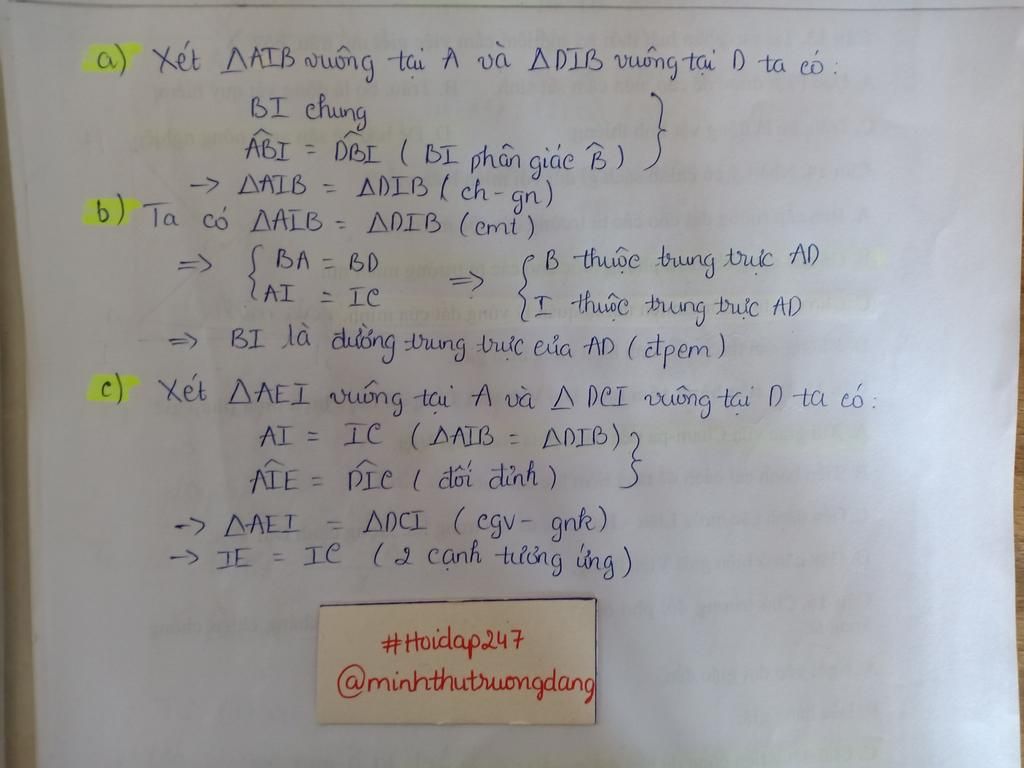 a) Xét △AIB vuông tại A và △DIB vuông tại D ta có:
BI chung
ABI = DBI ( BI phân giác B̂ )
→ △AIB = △DIB ( ch - gn)
b) Ta có △AIB = △DIB (cmt)
=> { BA = BD => { B thuộc trung trực AD
AI = IC I thuộc trung trực AD
=> BI là đường trung trực của AD (đpcm)
c) Xét △AEI vuông tại A và △DCI vuông tại D ta có:
AI = IC (△AIB = △DIB)
AIE = DIC ( đối đỉnh )
→ △AEI = △DCI (cgv - gnk)
→ IE = IC ( 2 cạnh tương ứng )
#Hoidap247
@minhthutruongdang